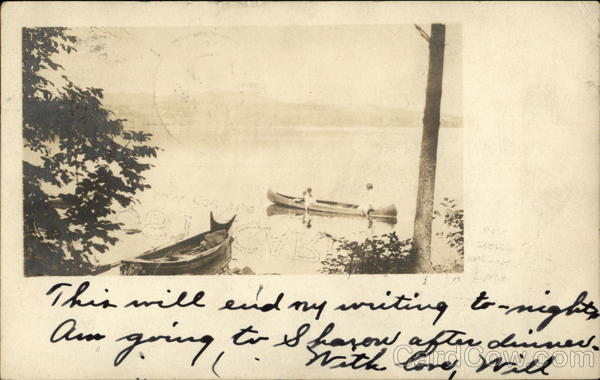 This will end my writing to-night
Am going to Sharon after dinner.
With love, Will
CardCow.com